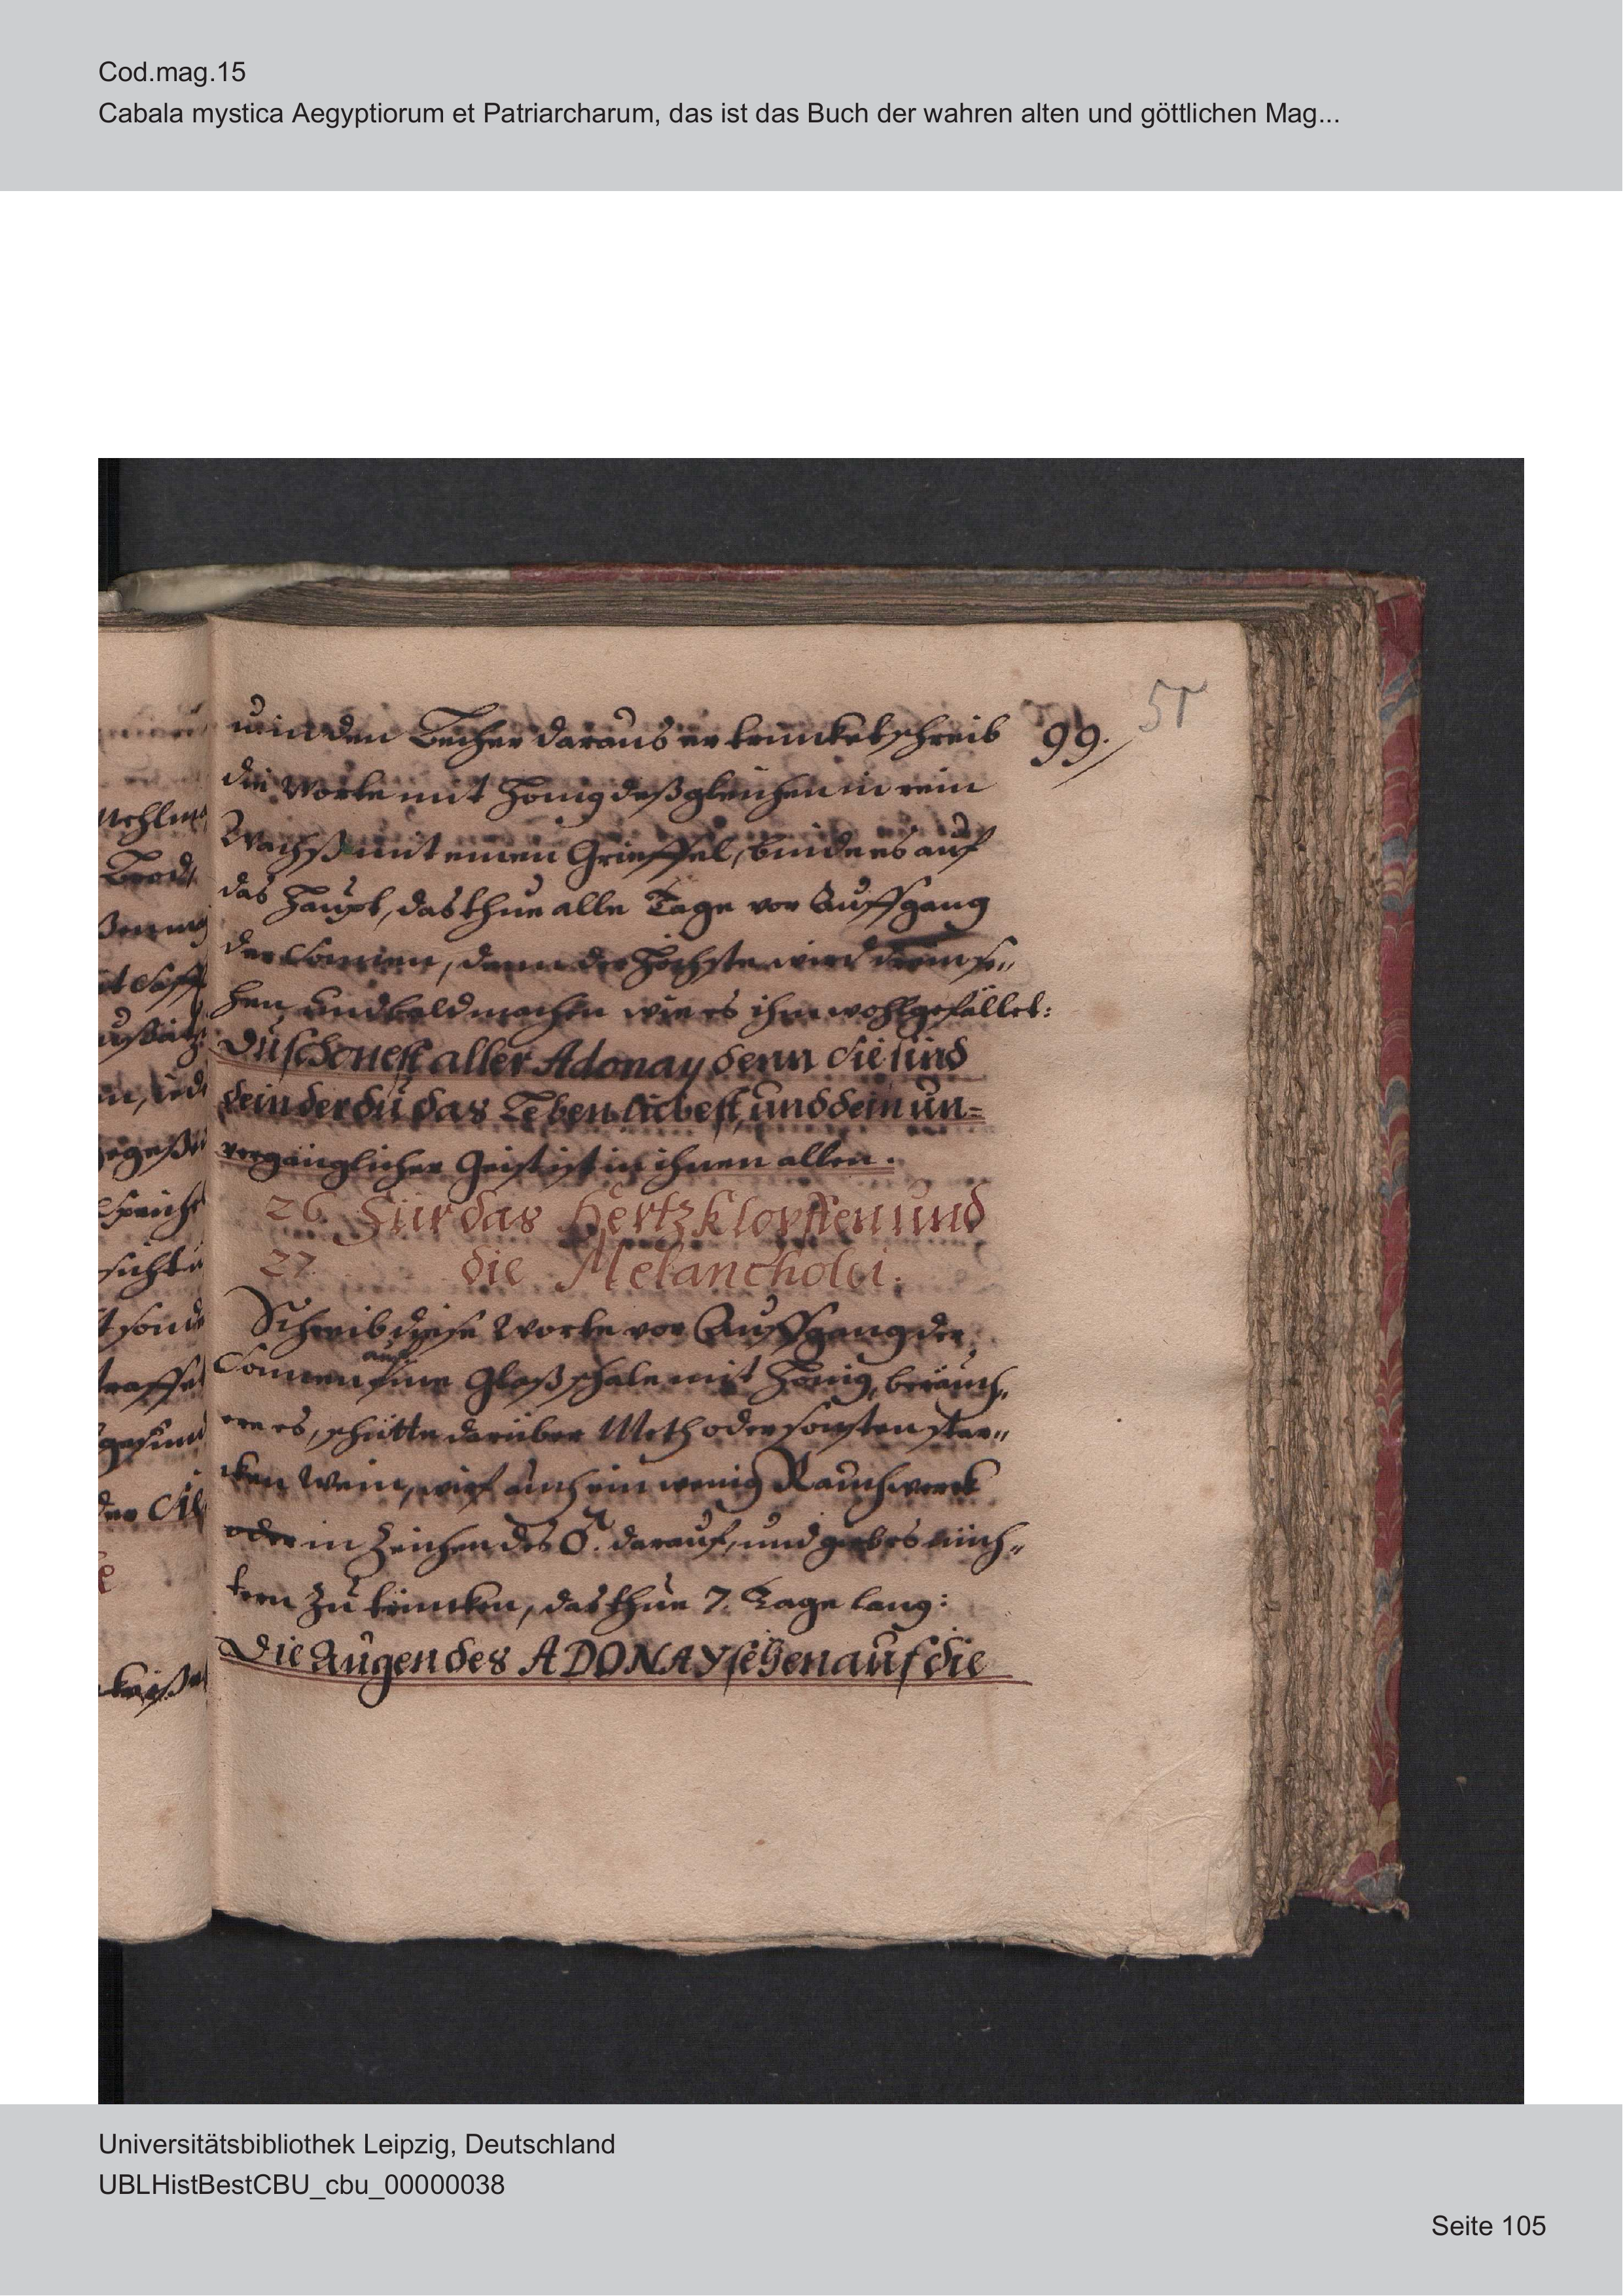 Cod.mag.15
Cabala mystica Aegyptiorum et Patriarcharum, das ist das Buch der wahren alten und göttlichen Mag...
51
99.
in den Becher daraus er trincket schreib
die Worte mit Honig deßgleichen in rein
Wachß mit einen Grieffel, binde es auf
das Haupt, das thue alle Tage vor Auffgang
der Sonnen, denn der Höchste wird drein se„
hen, und bald machen wie es ihm wohlgefället:
Du schonest aller Adonay denn sie sind
dein der du das Leben liebest, und dein un=
vergänglicher Geist ist in ihnen allen.
26 Für das Hertzklopffen und
27. die Melancholei.
Schreib diese Worte vor Auffgang der
Sonnen auf eine Glaßschale mit Honig, beräuch„
ere es, schütte darüber Meth oder sonsten star„
cken Wein, wirf auch ein wenig Rauchwerck
oder in Zeichen des darauf, und gieb es nüch„
tern zu trincken, das thue 7. Tage lang:
Die Augen des ADONAY sehen auf die
Mehl
Brod
und
gesund
der
Universitätsbibliothek Leipzig, Deutschland
UBLHistBestCBU_cbu_00000038
Seite 105